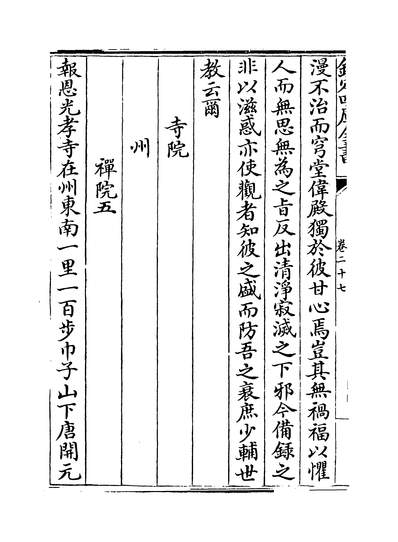 欽定四庫全書
卷二十七
漫不治而穹堂偉殿獨於彼甘心焉豈其無禍福以懼
人而無思無為之㫖反出清淨寂滅之下邪今備録之
非以滋惑亦使觀者知彼之盛而防吾之衰庶少輔世
教云爾
寺院
州
禪院五
報恩光孝寺在州東南一里一百步巾子山下唐開元